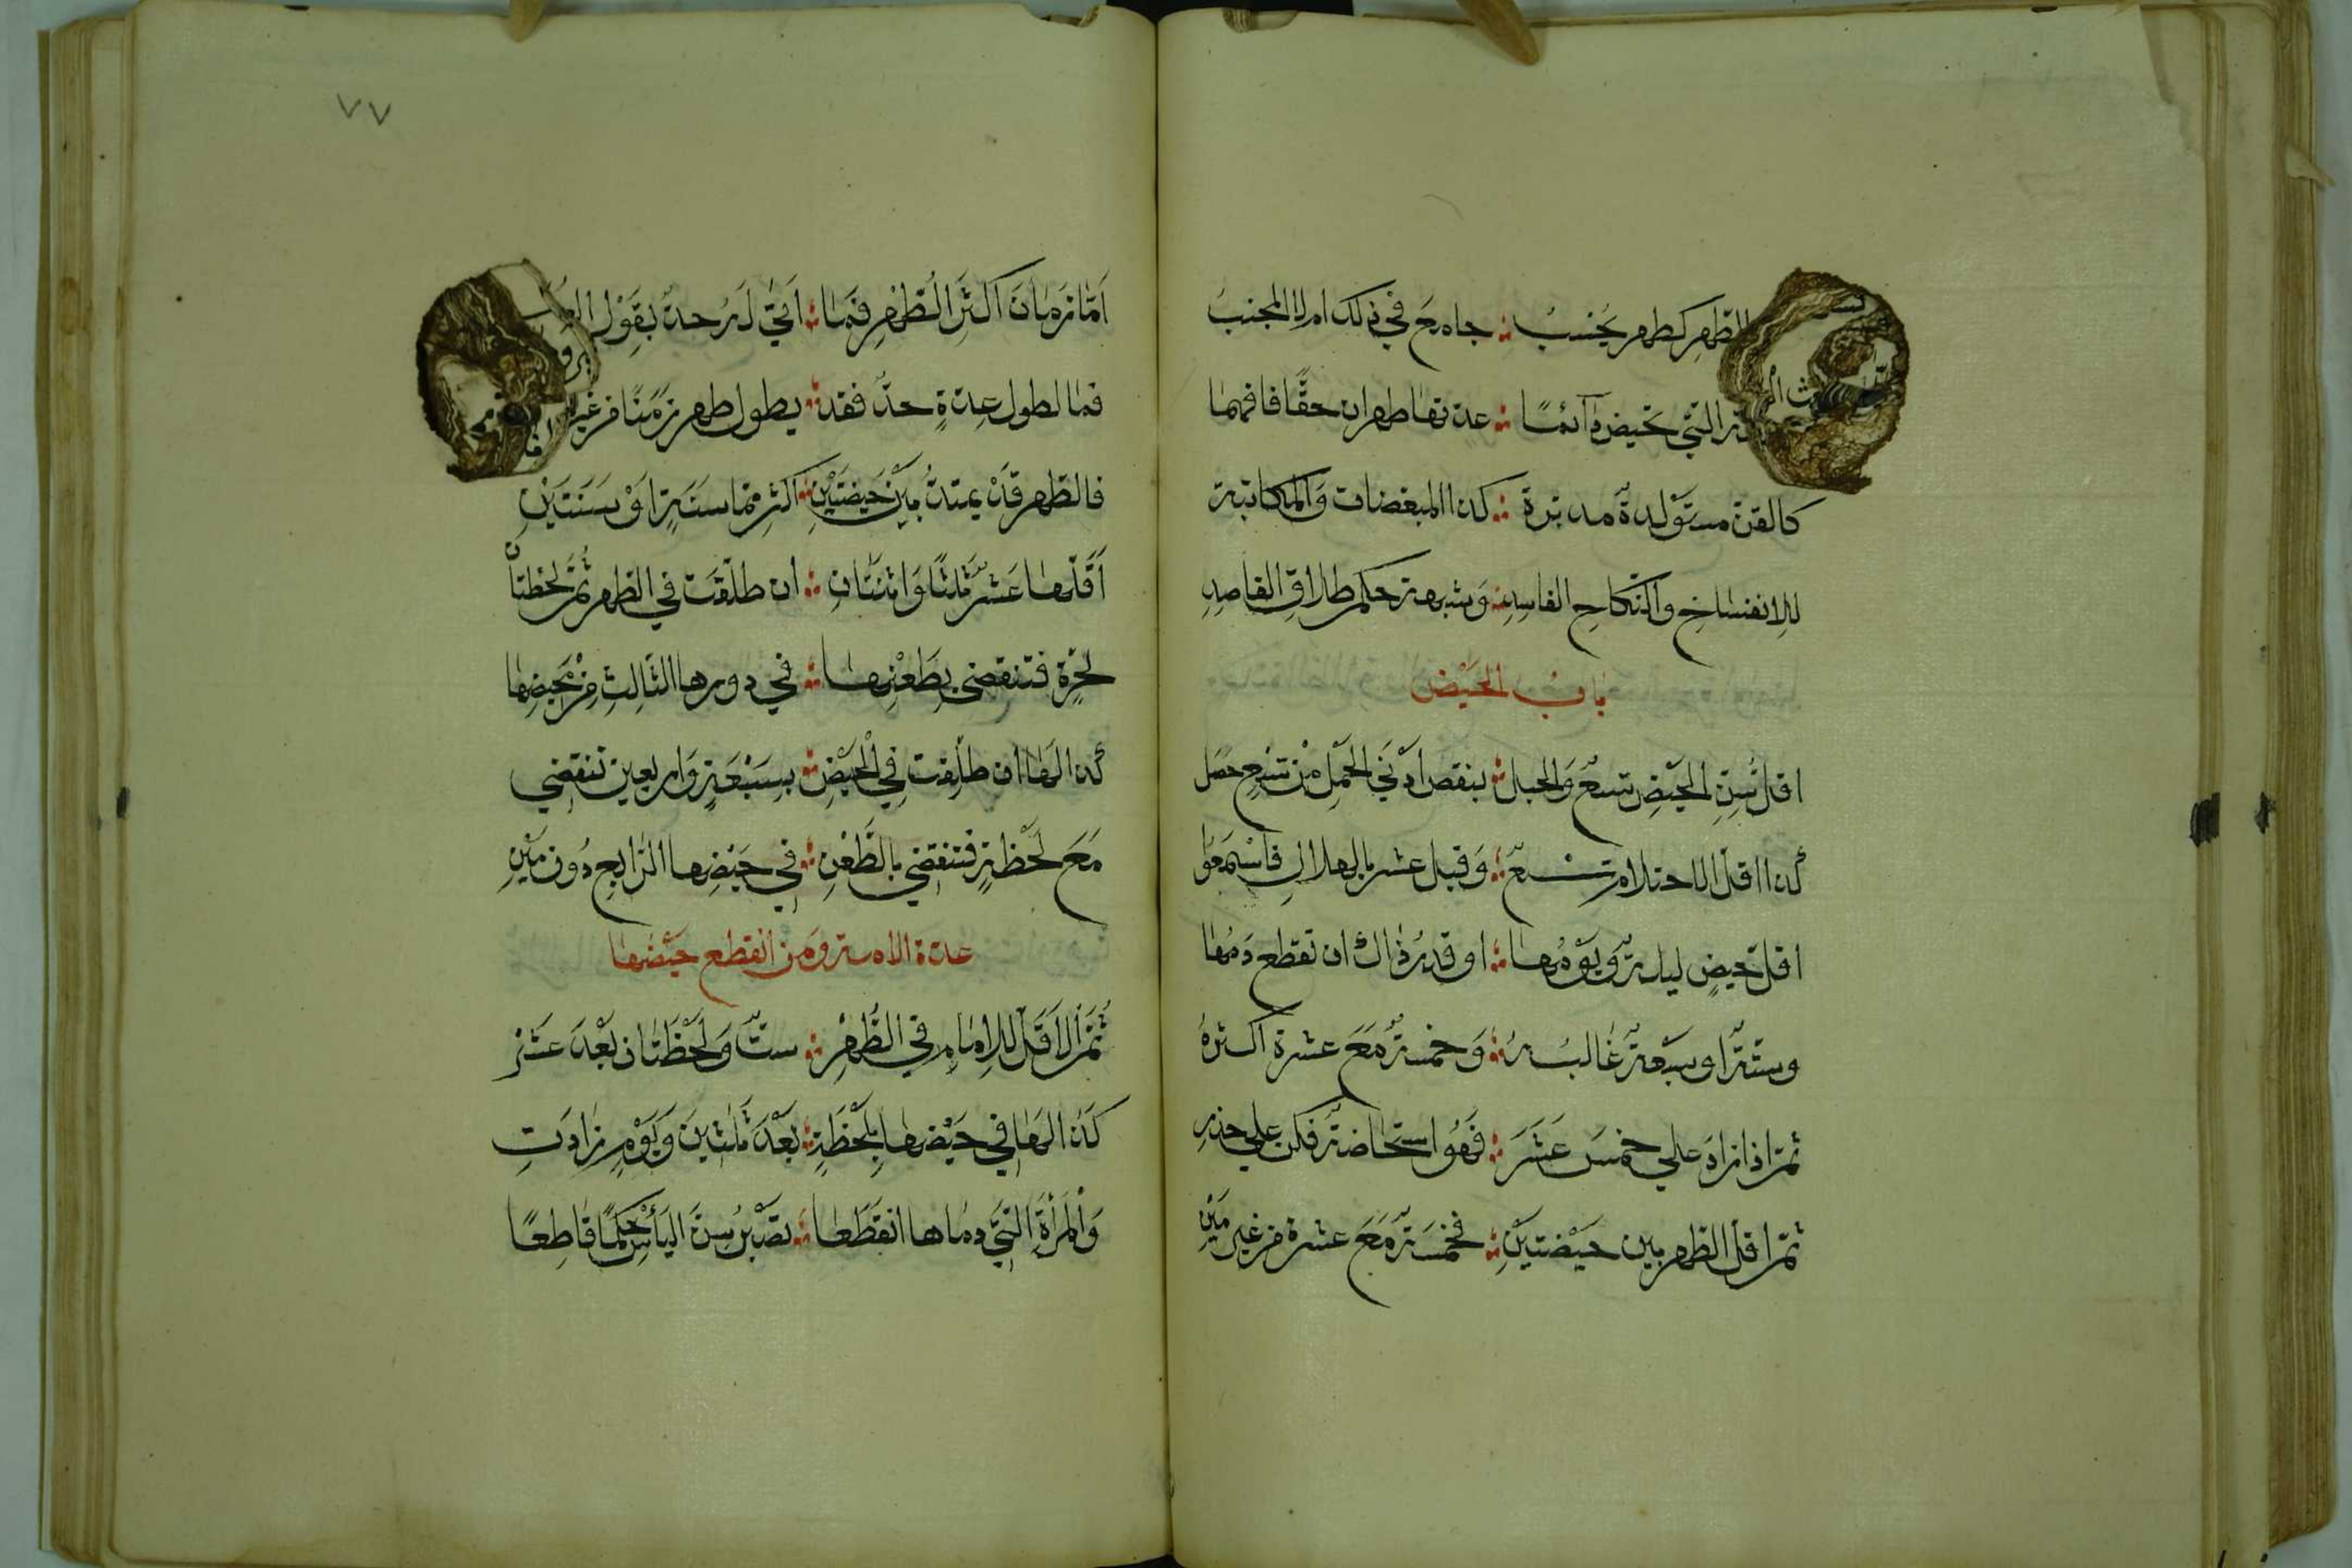 الطهر كطهر يحسب ؞ جامع في ذلك ام لا المجنب
التي تحيض دآئمًا ؞ عدتها طهران حقًّا فافهما
كالقن مستولدةٌ مدبرة ؞ كذا المبعضات والمكاتبة
للانفساخ والنكاح الفاسد ؞ وشبهة حكم طلاق القاصدِ
بابُ الحَيْض
اقل سنِ الحيضِ تسعٌ والحبل ؞ بنقص ادنَي الحَمْلِ منْ تسْعٍ حصل
كذا اقل الاحتلام تسعٌ ؞ وَقبل عشر بالهلالِ فاسْمَعُوا
اقل حيضٍ ليلةٌ ويَوْمُها ؞ او قدرُ ذاك ان تقطع دَمُها
وستةٌ او سبعةٌ غالبُهُ ؞ وَخمسةٌ مَعَ عشرة اكثرهُ
ثمّ اذا زادَ علي خمسَ عَشَرَ ؞ فَهُو استحاضةٌ فكن علي حذر
ثمّ اقل الطهر بين حيْضتيْنِ ؞ فخمسَةٌ مَعَ عشرة من غير مَيْنِ
٧٧
اَمّا زمانَ اكثَرِ الطُّهْرِ فَمَا ؞ اَتيٰ لَهُ حدٌّ بقَوْل
فما لطول عدةٍ حدٌّ فقد ؞ يطول طهر زمنًا من غير
فالطهر قَدْ يمتدُّ بيْنَ حَيضتَيْنِ ؞ اكثر مما سنَةٍ اوْ سَنَتَيْنِ
اَقَلّهَا عَشْرٌ ثلثًا وَاثنَتَانِ ؞ ان طلّقَت في الطهر ثُمَّ لحْظتانْ
لحُرة فتنقضي بطَعْنِهَا ؞ في دورها الثالثِ مِنْ حَيضِها
كذا لها ان طلّقت فِي الْحَيْضِ ؞ بسبْعَةٍ وَاربعين تنقضي
مَعَ لحْظةٍ فتنقضي بالطَّعْنِ ؞ في حيْضِها الرّابعِ دُونَ مَيْنِ
عدة الامة ومَن انقطع حيْضها
ثُمّ الاَقَلّ للاماءِ في الطُّهْرِ ؞ ستٌّ وَلَحْظَتان بَعْدَ عَشْرِ
كَذا لهَا في حَيْضها بلَحْظَةٍ ؞ بَعْدَ ثَلٰثينَ وَيَوْمٍ زادَتِ
وَالْمَرْأَة التي دماها انقَطَعا ؞ تصْبر سِنَ اليَأْسِ حُكْمًا قاطعًا